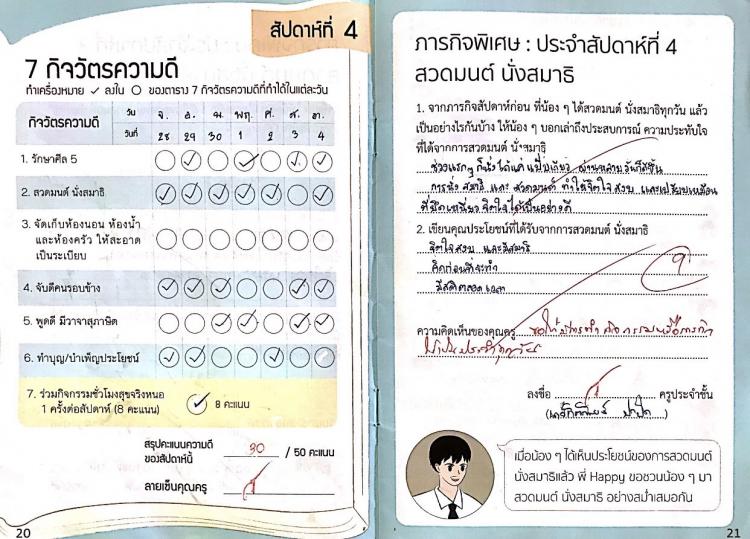 สัปดาห์ที่ 4
7 กิจวัตรความดี
ทำเครื่องหมาย ✓ ลงใน ○ ของตาราง 7 กิจวัตรความดีที่ทำได้ในแต่ละวัน
กิจวัตรความดี
วัน จ. อ. พ. พฤ. ศ. ส. อา.
วันที่ 28 29 30 1 2 3 4
1. รักษาศีล 5
2. สวดมนต์ นั่งสมาธิ
3. จัดเก็บห้องนอน ห้องน้ำ
และห้องครัว ให้สะอาด
เป็นระเบียบ
4. จับดีคนรอบข้าง
5. พูดดี มีวาจาสุภาษิต
6. ทำบุญ/บำเพ็ญประโยชน์
7. ร่วมกิจกรรมชั่วโมงสุขจริงหนอ
1 ครั้งต่อสัปดาห์ (8 คะแนน)
8 คะแนน
สรุปคะแนนความดี
ของสัปดาห์นี้ 30 / 50 คะแนน
ลายเซ็นคุณครู
20
ภารกิจพิเศษ : ประจำสัปดาห์ที่ 4
สวดมนต์ นั่งสมาธิ
1. จากภารกิจสัปดาห์ก่อน ที่น้อง ๆ ได้สวดมนต์ นั่งสมาธิทุกวัน แล้ว
เป็นอย่างไรกันบ้าง ให้น้อง ๆ บอกเล่าถึงประสบการณ์ ความประทับใจ
ที่ได้จากการสวดมนต์ นั่งสมาธิ
ช่วงแรกๆ ก็นั่งได้แค่
การนั่ง สมาธิ และ สวดมนต์ ทำให้จิตใจ สงบ และเปรียบเหมือน
ที่ยึดเหนี่ยว จิตใจ ได้เป็นอย่างดี
2. เขียนคุณประโยชน์ที่ได้รับจากการสวดมนต์ นั่งสมาธิ
จิตใจสงบ และมีสมาธิ
คิดก่อนที่จะทำ
มีสติตลอดเวลา
ความคิดเห็นของคุณครู ขอให้
ลงชื่อ ครูประจำชั้น
เมื่อน้อง ๆ ได้เห็นประโยชน์ของการสวดมนต์
นั่งสมาธิแล้ว พี่ Happy ขอชวนน้อง ๆ มา
สวดมนต์ นั่งสมาธิ อย่างสม่ำเสมอกัน
21